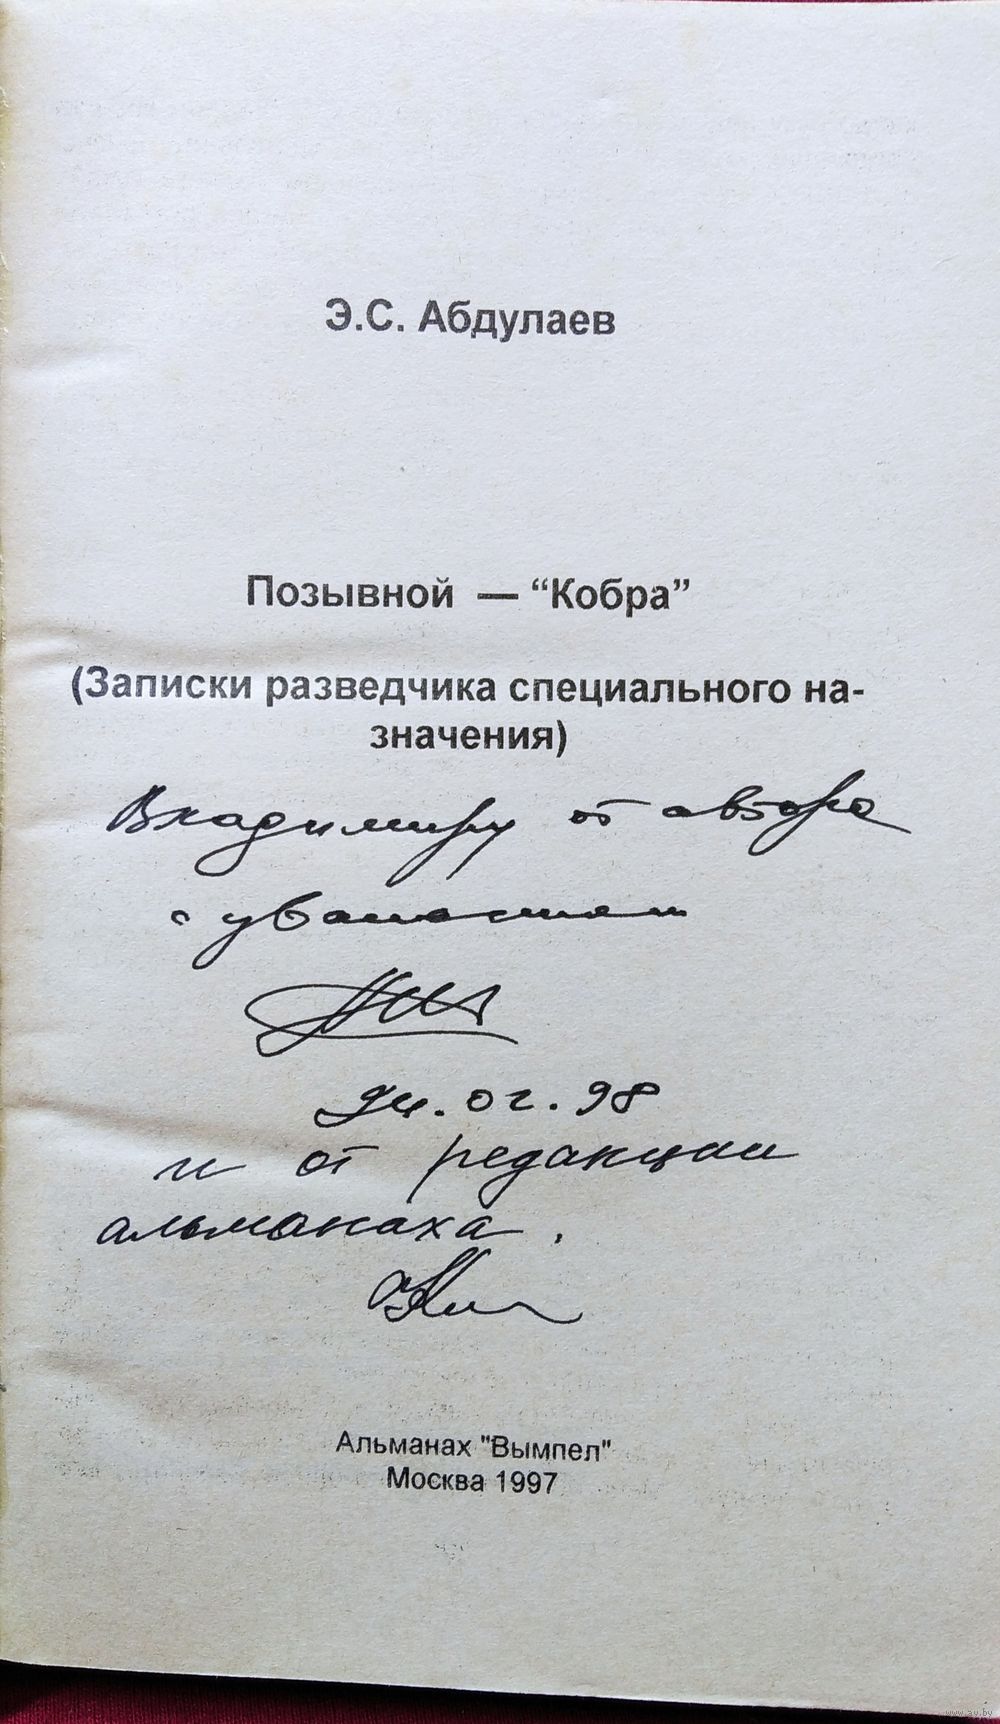 Э.С. Абдулаев
Позывной — “Кобра”
(Записки разведчика специального на-
значения)
Владимиру от автора
с уважением
и от редакции
альманаха.
Альманах "Вымпел"
Москва 1997
www.ay.by